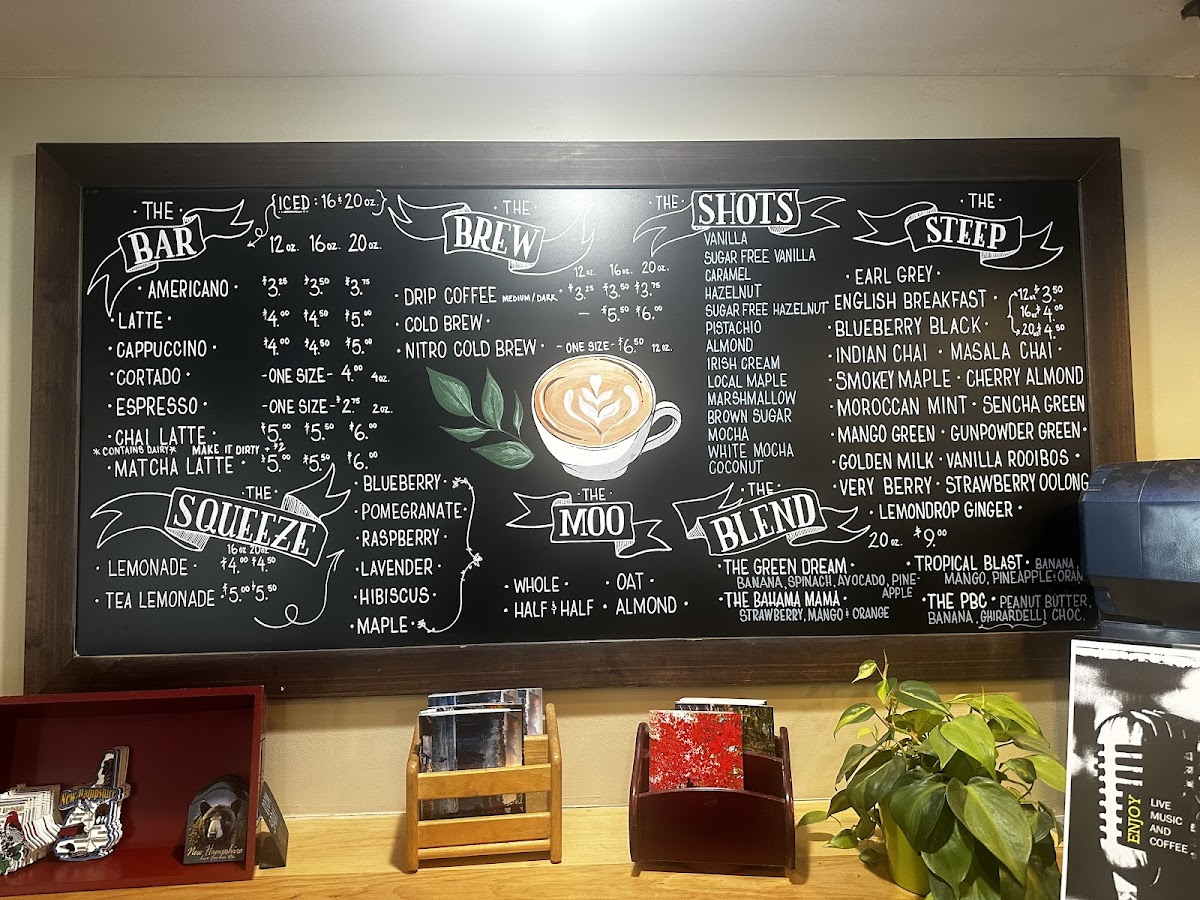 THE
BAR
{ICED: 16 & 20 oz.}
12 oz. 16 oz. 20 oz.
· AMERICANO · $3.25 $3.50 $3.75
· LATTE · $4.00 $4.50 $5.00
· CAPPUCCINO · $4.00 $4.50 $5.00
· CORTADO · -ONE SIZE- 4.00 4oz.
· ESPRESSO · -ONE SIZE- $2.75 2oz.
· CHAI LATTE · $5.00 $5.50 $6.00
*CONTAINS DAIRY* MAKE IT DIRTY + $2
· MATCHA LATTE · $5.00 $5.50 $6.00
· THE ·
SQUEEZE
16 oz 20 oz
· LEMONADE · $4.00 $4.50
· TEA LEMONADE · $5.00 $5.50
· BLUEBERRY ·
· POMEGRANATE ·
· RASPBERRY ·
· LAVENDER ·
· HIBISCUS ·
· MAPLE ·
· THE ·
BREW
12 oz. 16 oz. 20 oz.
· DRIP COFFEE MEDIUM/DARK · $3.25 $3.50 $3.75
· COLD BREW · – $5.50 $6.00
· NITRO COLD BREW · -ONE SIZE- $6.50 12 oz.
· THE ·
MOO
· WHOLE · · OAT ·
· HALF & HALF · ALMOND ·
· THE ·
SHOTS
VANILLA
SUGAR FREE VANILLA
CARAMEL
HAZELNUT
SUGAR FREE HAZELNUT
PISTACHIO
ALMOND
IRISH CREAM
LOCAL MAPLE
MARSHMALLOW
BROWN SUGAR
MOCHA
WHITE MOCHA
COCONUT
· THE ·
STEEP
· EARL GREY ·
· ENGLISH BREAKFAST · 12oz $3.50
16oz $4.00
· BLUEBERRY BLACK · 20oz $4.50
· INDIAN CHAI · MASALA CHAI ·
· SMOKEY MAPLE · CHERRY ALMOND
· MOROCCAN MINT · SENCHA GREEN
· MANGO GREEN · GUNPOWDER GREEN ·
· GOLDEN MILK · VANILLA ROOIBOS ·
· VERY BERRY · STRAWBERRY OOLONG
· LEMONDROP GINGER ·
· THE ·
BLEND
20 oz. $9.00
· THE GREEN DREAM ·
BANANA, SPINACH, AVOCADO, PINE-
APPLE
· THE BAHAMA MAMA ·
STRAWBERRY, MANGO & ORANGE
· TROPICAL BLAST · BANANA,
MANGO, PINEAPPLE & ORAN
· THE PBC · PEANUT BUTTER,
BANANA, GHIRARDELLI CHOC.
New Hampshire
New Hampshire
ENJOY
LIVE
MUSIC
AND
COFFEE